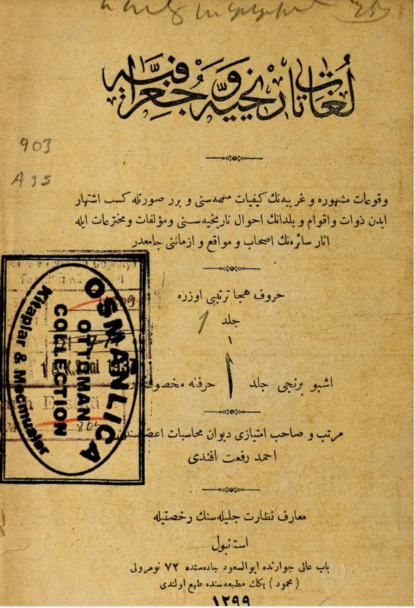 لغات تاريخيه و جغرافيه
903
A35
وقوعات مشهوره و غريبه‌نك كيفيات مهمه‌سنى و برر صورتله كسب اشتهار
ايدن ذوات واقوام و بلدانك احوال تاريخيه‌سنى ومؤلفات ومخترعات ايله
اثار سائره‌نك اصحاب و مواقع و ازماننى جامعدر
حروف هجا ترتيبى اوزره
جلد
١
اشبو برنجى جلد ا حرفنه
مرتب و صاحب امتيازى ديوان محاسبات
احمد رفعت افندى
معارف نظارت جليله‌سنك رخصتيله
استانبول
باب عالى جوارنده ابوالسعود جاده‌سنده ٧٢ نومرولى
( محمود ) بك مطبعه‌سنده طبع اولندى
١٢٩٩
OSMANLICA
OTTOMAN
COLLECTION
Kitaplar & Mecmualar